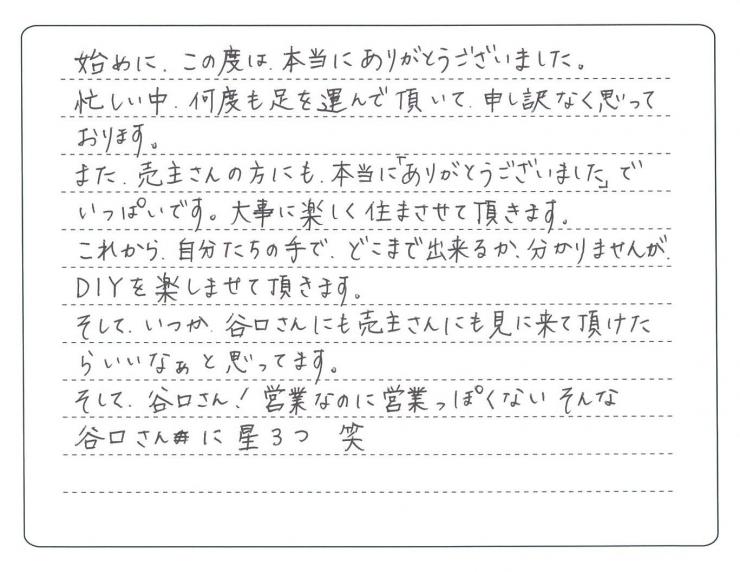 始めに、この度は、本当にありがとうございました。
忙しい中、何度も足を運んで頂いて、申し訳なく思って
おります。
また、売主さんの方にも、本当に「ありがとうございました」で
いっぱいです。大事に楽しく住まさせて頂きます。
これから、自分たちの手で、どこまで出来るか、分かりませんが、
DIYを楽しませて頂きます。
そして、いつか、谷口さんにも売主さんにも見に来て頂けた
らいいなぁと思ってます。
そして、谷口さん！営業なのに営業っぽくない そんな
谷口さんに星3つ 笑